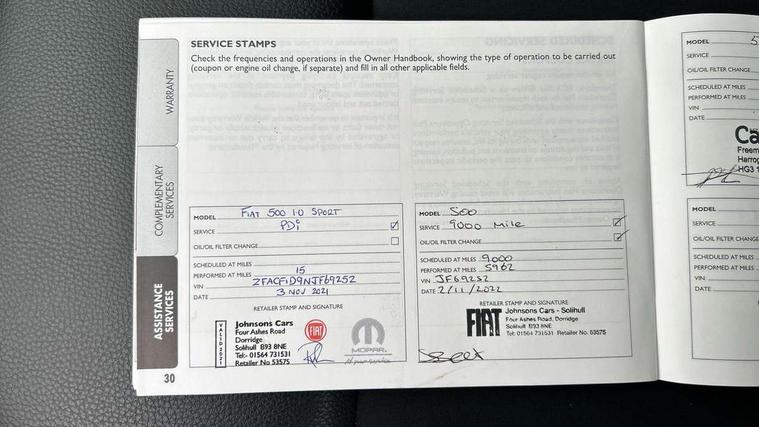 SERVICE STAMPS
Check the frequencies and operations in the Owner Handbook, showing the type of operation to be carried out
(coupon or engine oil change, if separate) and fill in all other applicable fields.
WARRANTY
COMPLEMENTARY
SERVICES
ASSISTANCE
SERVICES
MODEL FIAT 500 1.0 SPORT
SERVICE PDi
OIL/OIL FILTER CHANGE
SCHEDULED AT MILES
PERFORMED AT MILES 15
VIN ZFACFiD9NJF69252
DATE 3 NOV 2021
RETAILER STAMP AND SIGNATURE
VALID 2021
Johnsons Cars
Four Ashes Road
Dorridge
Solihull B93 8NE
Tel:- 01564 731531
Retailer No 53575
FIAT
MOPAR
MODEL 500
SERVICE 9000 Mile
OIL/OIL FILTER CHANGE
SCHEDULED AT MILES 9000
PERFORMED AT MILES 5962
VIN JF69252
DATE 2/11/2022
RETAILER STAMP AND SIGNATURE
FIAT
Johnsons Cars - Solihull
Four Ashes Road, Dorridge
Solihull B93 8NE
Tel: 01564 731531 Retailer No. 53575
30
MODEL 5
SERVICE
OIL/OIL FILTER CHANGE
SCHEDULED AT MILES
PERFORMED AT MILES
VIN
DATE
Ca
Freem
Harrog
HG3 1
MODEL
SERVICE
OIL/OIL FILTER CHANGE
SCHEDULED AT MILES
PERFORMED AT MILES
VIN
DATE